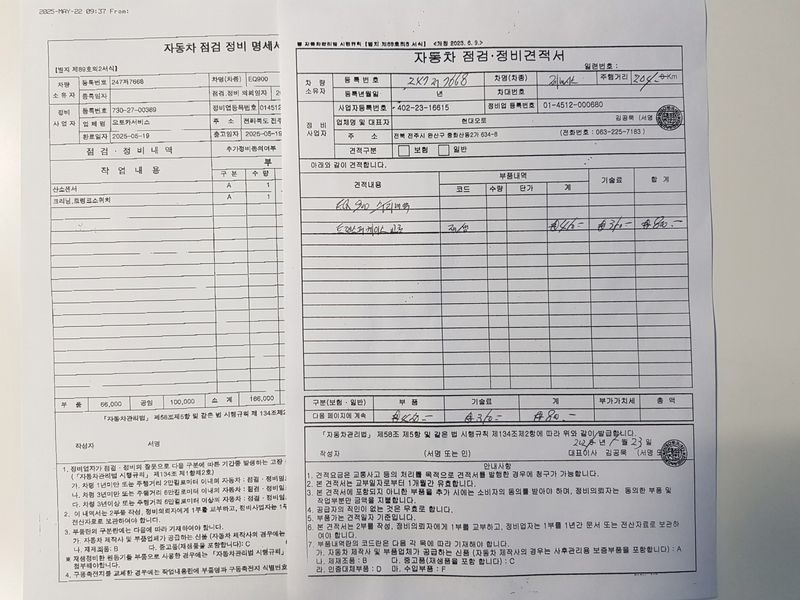 2025-MAY-22 09:37 From:
자동차 점검 정비 명세서
[별지 제89호의2서식]
차량
소유자
등록번호 247저7668
차명(차종) EQ900
등록일자
점검.정비 의뢰일자
정비
사업자
등록번호 730-27-00389
정비업등록번호
업체명 오토카서비스
주 소 전라북도 전주
완료일자 2025-05-19
출고일자 2025-05-19
점검·정비내역
추가정비동의여부
작업내용
구분 수량
산소센서 A 1
크리닝,토링크스위치 A 1
부품 66,000 공임 100,000 소계 166,000
「자동차관리법」 제58조제5항 및 같은 법 시행규칙 제134조제2
작성자 서명
1. 정비업자가 점검·정비의 잘못으로 다음 구분에 따른 기간중 발생하는 고장
(「자동차관리법 시행규칙」 제134조 제1항제2호)
가. 차령 1년미만 또는 주행거리 2만킬로미터 이내의 자동차 : 점검·정비일
나. 차령 3년미만 또는 주행거리 6만킬로미터 이내의 자동차 : 점검·정비일
다. 차령 3년이상 또는 주행거리 6만킬로미터 이상의 자동차 : 점검·정비일
2. 이 내역서는 2부를 작성, 정비의뢰자에게 1부를 교부하고, 정비사업자는 1부
전산자료로 보관하여야 합니다.
3. 부품란의 구분란에는 다음에 따라 기재하여야 합니다.
가. 자동차 제작사 및 부품업체가 공급하는 신품 (자동차 제작사의 경우에는
나. 재제조품 : B 다. 중고품(재생품을 포함합니다) : C
4. 구동축전지를 교체한 경우에는 작업내용란에 부품명과 구동축전지 식별번호
■ 자동차관리법 시행규칙 [별지 제89호의3 서식] <개정 2023. 6. 9.>
자동차 점검·정비견적서
일련번호 :
차 량
소유자
등 록 번 호 247저7668
차명(차종)
주행거리 Km
등록년월일 년
차대번호
정 비
사업자
사업자등록번호 402-23-16615
정비업 등록번호 01-4512-000680
업체명 및 대표자 현대오토 김공욱 (서명
주 소 전북 전주시 완산구 중화산동2가 634-8 (전화번호 : 063-225-7183 )
견적구분 보험 일반
아래와 같이 견적합니다.
견적내용 부품내역 기술료 합 계
코드 수량 단가 계
구분(보험·일반) 부 품 기술료 부가가치세 총 액
다음 페이지에 계속
「자동차관리법」 제58조 제5항 및 같은법 시행규칙 제134조제2항에 따라 위와 같이 발급합니다.
23 일
작성자 (서명 또는 인) 대표이사 김공욱 (서명
안내사항
1. 견적요금은 교통사고 등의 처리를 목적으로 견적서를 발행한 경우에 청구가 가능합니다.
2. 본 견적서는 교부일자로부터 1개월간 유효합니다.
3. 본 견적서에 포함되지 아니한 부품을 추가 시에는 소비자의 동의를 받아야 하며, 정비의뢰자는 동의한 부품 및
작업부분만 금액을 지불합니다.
4. 공급자의 직인이 없는 것은 무효로 합니다.
5. 부품가는 견적일자 기준입니다.
6. 본 견적서는 2부를 작성, 정비의뢰자에게 1부를 교부하고, 정비업자는 1부를 1년간 문서 또는 전산자료로 보관하
여야 합니다.
7. 부품내역란의 코드란은 다음 각 목에 따라 기재해야 합니다.
가. 자동차 제작사 및 부품업체가 공급하는 신품 (자동차 제작사의 경우는 사후관리용 보증부품을 포함합니다) : A
나. 재제조품 : B 다. 중고품(재생품을 포함 합니다) : C
라. 인증대체부품 : D 마. 수입부품 : F